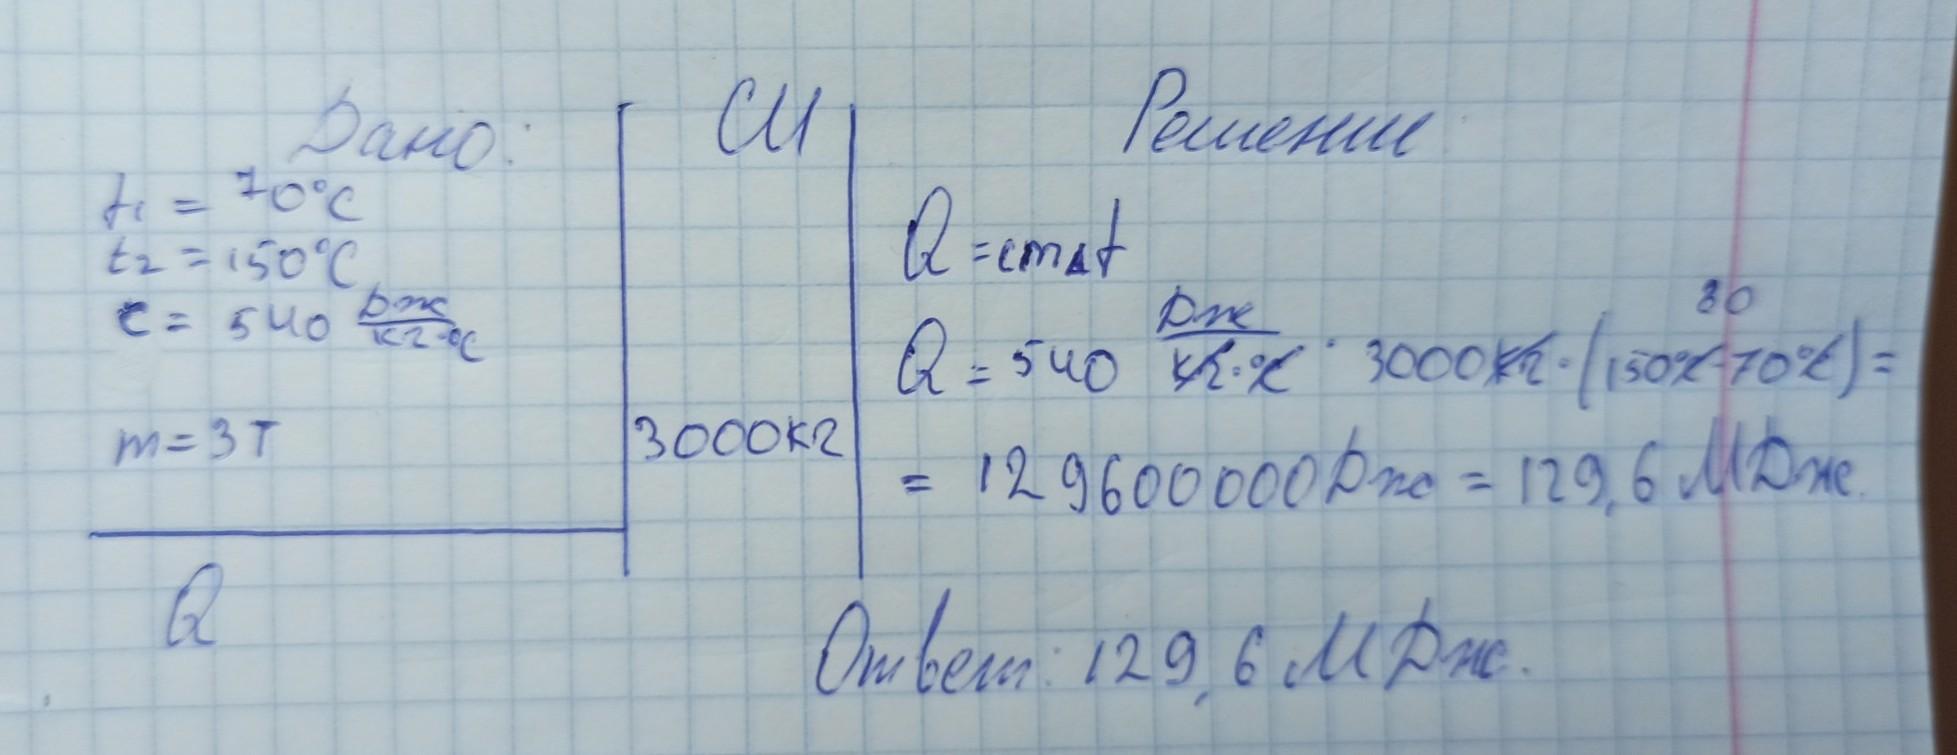 Дано:
t₁ = 70°C
t₂ = 150°C
c = 540 Дж/кг·°C
m = 3 т
Q
СИ
3000 кг
Решение
Q = cmΔt
80
Q = 540 Дж/кг·°C · 3000 кг · (150°C-70°C) =
= 129600000 Дж = 129,6 МДж.
Ответ: 129,6 МДж.